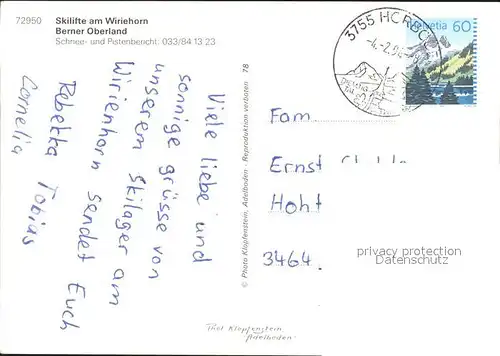 72950 Skilifte am Wiriehorn
Berner Oberland
Schnee- und Pistenbericht: 033/84 13 23
Viele liebe und
sonnige grüsse von
unserem Skilager am
Wirienhorn sendet Euch
Rebekka Tobias
Cornelia
© Photo Klopfenstein, Adelboden - Reproduktion verboten 78
Phot Klopfenstein
Adelboden
3755
-4.-2.9
Helvetia 60
Fam
Ernst
Hoht
3464.
privacy protection
Datenschutz